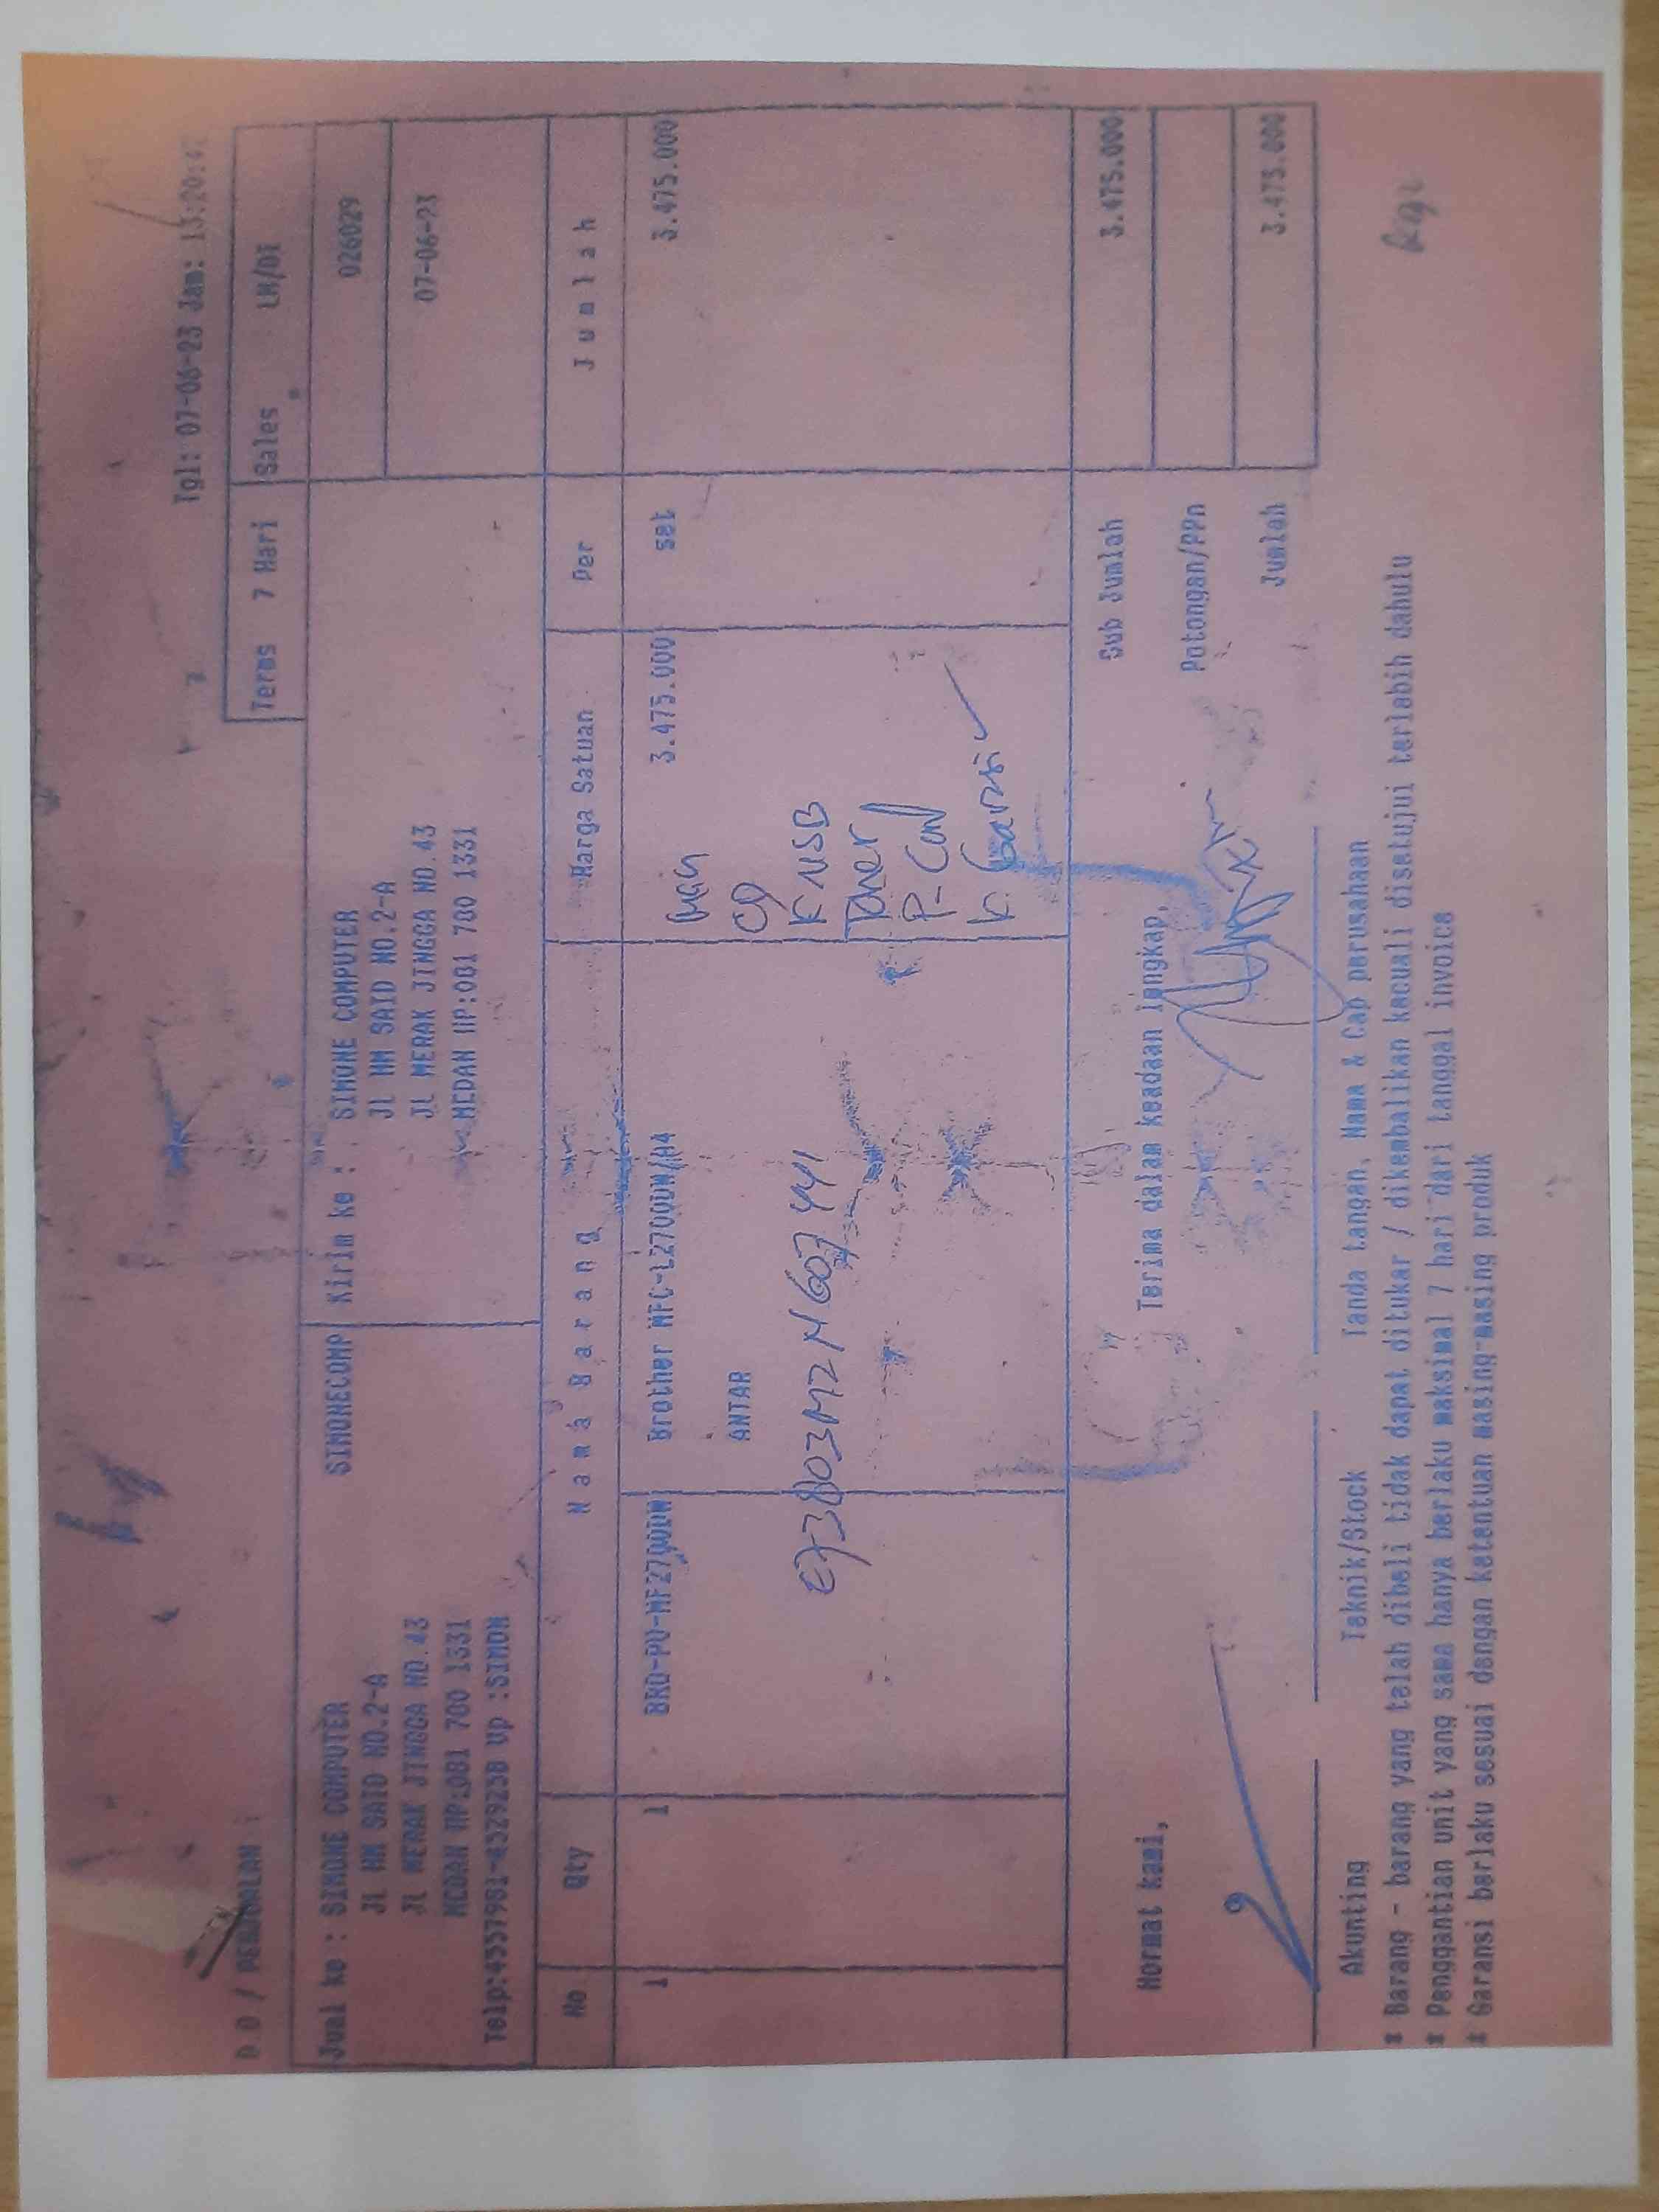 Tgl: 07-06-23 Jam: 13:20:47
D O / PENJUALAN :
Terms 7 Hari Sales LM/DI
Jual ke : SIMONE COMPUTER SIMONECOMP Kirim ke : SIMONE COMPUTER 026029
JL HM SAID NO.2-A JL HM SAID NO.2-A
JL MERAK JINGGA NO.43 JL MERAK JINGGA NO.43 07-06-23
MEDAN HP:081 780 1331 MEDAN HP:081 780 1331
Telp:4557981-4529238 Up :SIMON
No Qty Nama Barang Harga Satuan Per Jumlah
1 1 BRO-PU-MF2700DW Brother MFC-L2700DW/A4 3.475.000 set 3.475.000
ANTAR
CD
E73803M2N607441 K USB
Toner
K. Garansi
Hormat kami, Terima dalam keadaan lengkap, Sub Jumlah 3.475.000
Potongan/PPn
Jumlah 3.475.000
Akunting Teknik/Stock Tanda tangan, Nama & Cap perusahaan
* Barang - barang yang telah dibeli tidak dapat ditukar / dikembalikan kecuali disetujui terlebih dahulu
* Penggantian unit yang sama hanya berlaku maksimal 7 hari dari tanggal invoice
* Garansi berlaku sesuai dengan ketentuan masing-masing produk